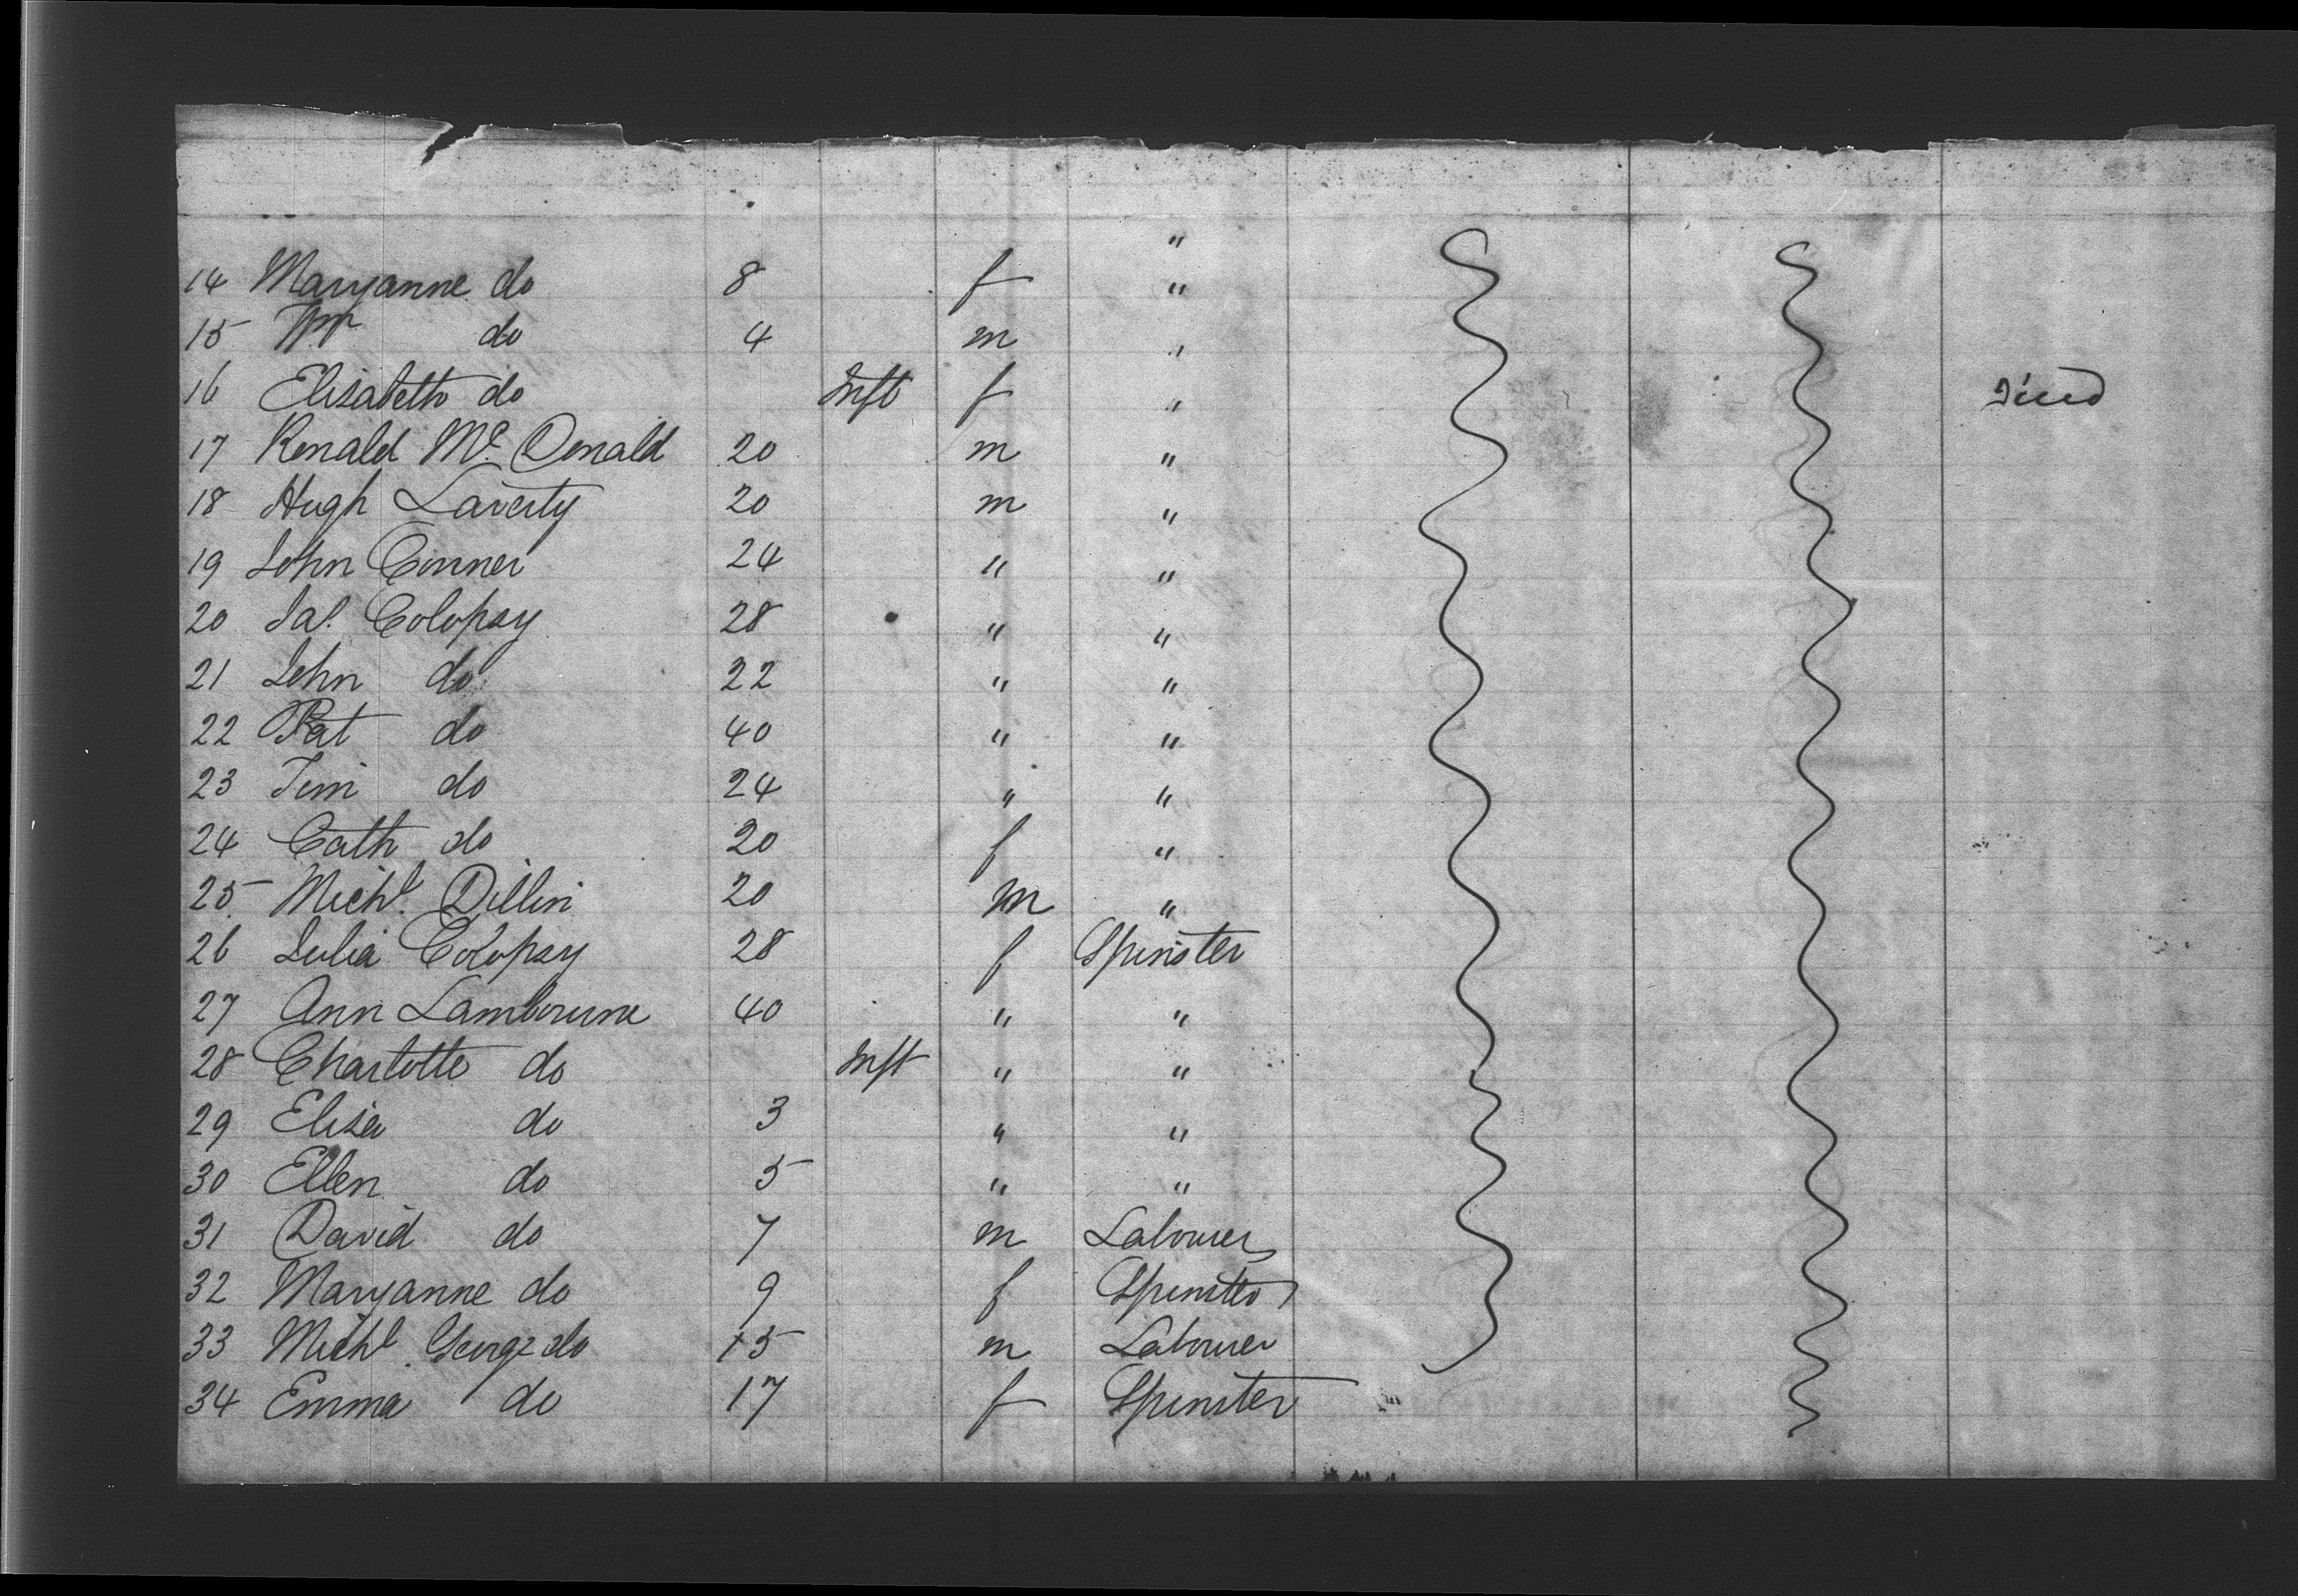 "
14 Maryanne do 8 f "
15 Wm do 4 m "
16 Elisabeth do Inft f " Died
17 Ronald Mc Donald 20 m "
18 Hugh Laverty 20 m "
19 John Conner 24 " "
20 Jas. Colopsy 28 " "
21 John do 22 " "
22 Pat do 40 " "
23 Tim do 24 " "
24 Cath do 20 f "
25 Michl. Dillin 20 m "
26 Julia Colopsy 28 f Spinster
27 Ann Lambourne 40 " "
28 Charlotte do Inft " "
29 Elisa do 3 " "
30 Ellen do 5 " "
31 David do 7 m Labourer
32 Maryanne do 9 f Spinster
33 Michl. George do 15 m Labourer
34 Emma do 17 f Spinster